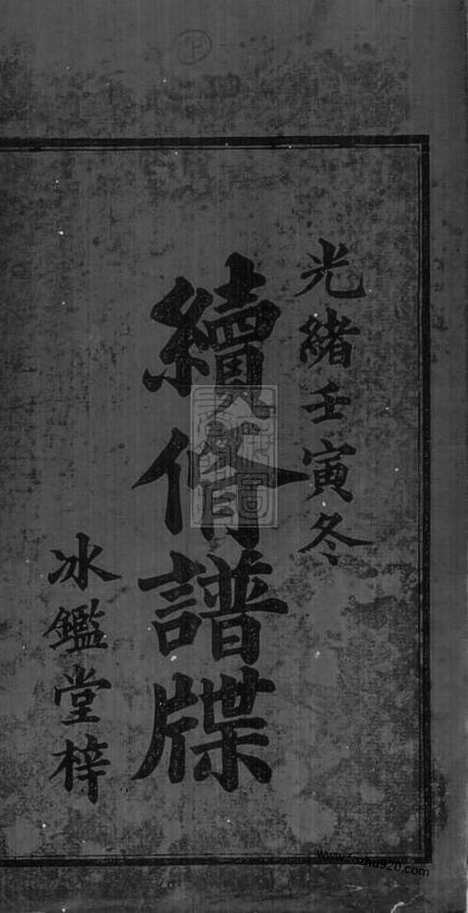 光緒壬寅冬
續脩譜牒
冰鑑堂梓